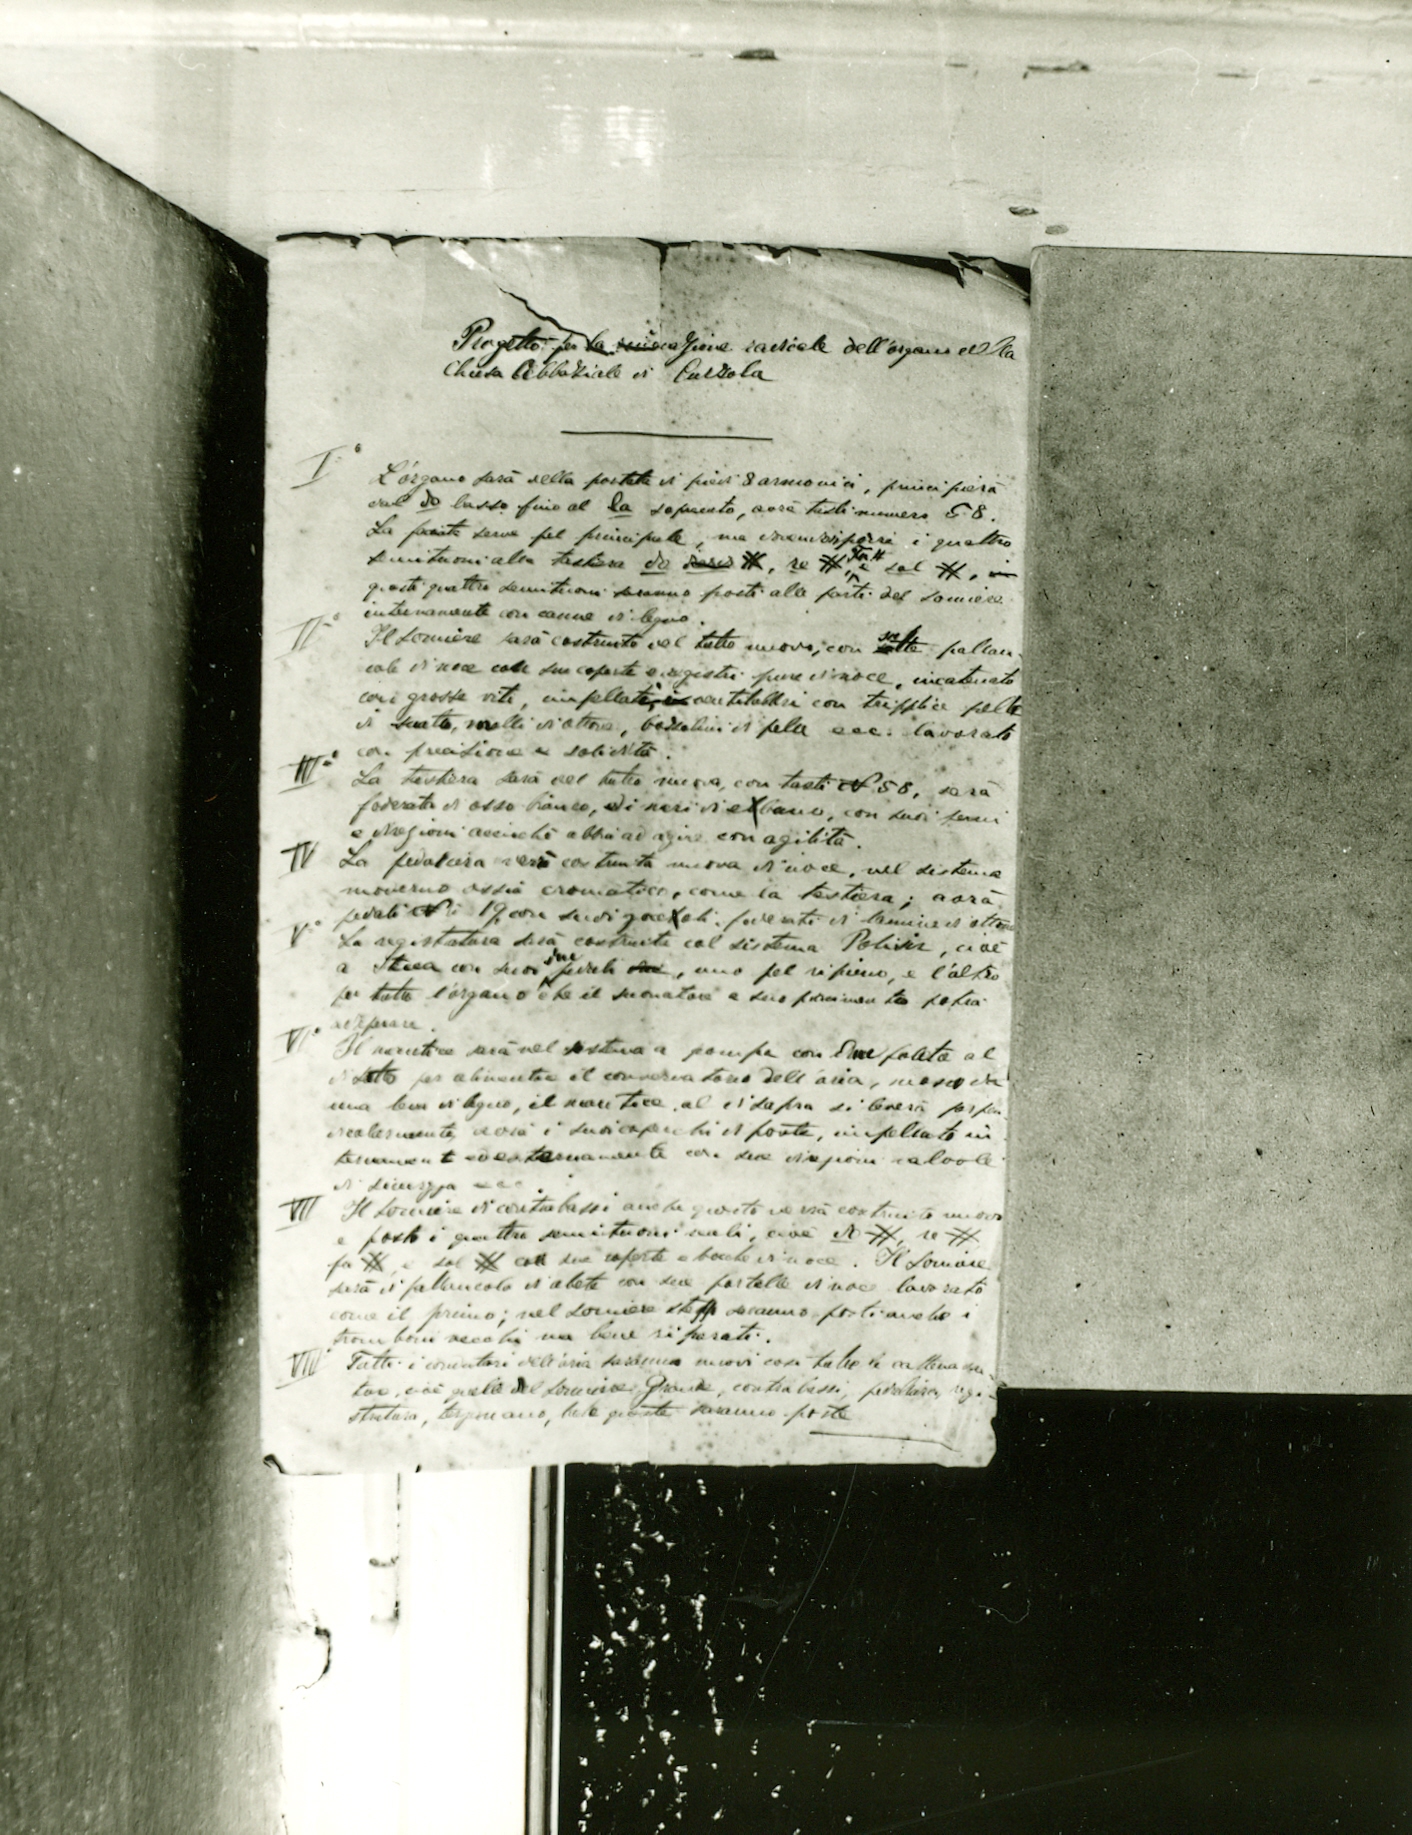 Progetto per la rinovazione radicale dell'organo della
Chiesa Abbaziale di Curzola
I°
L'organo sarà della portata di piedi 8 armonici, principierà
dal do basso fino al la sopracuto, avrà tasti numero 58.
La facciata serve pel principale, ma i quattro
semituoni alla tastiera do #, re #, Fa # e sol #,
questi quattro semituoni saranno posti alle parti del somiere
internamente con canne di legno.
II°
Il Somiere sarà costruito del tutto nuovo, con pallan-
cole di noce con sue coperte e registri pure di noce, incatenato
con grosse viti, impellato, ventilabri con tripplice pelle
di , molle di ottone, borsalini di pelle ecc. lavorato
con precisione e solidità.
III°
La tastiera sarà del tutto nuova, con tasti N 58, sarà
foderata di osso bianco, di neri di ebano, con suoi perni
e acciochè abbia ad agire con agilità.
IV
La pedaliera verrà costruita nuova di noce, nel sistema
moderno ossia cromatico, come la tastiera; avrà
pedali Ni 19, con suoi foderati di lamine di ottone
V°
La registratura sarà costruita col sistema , cioè
a Stecca con suoi due pedali, uno pel ripieno, e l'altro
per tutto l'organo che il suonatore a suo piacimento potrà
adoperare.
VI°
Il mantice sarà nel sistema a pompa con Due folette al
di sotto per alimentare il conservatorio dell'aria, mosso da
una leva di legno, il mantice al di sopra si leverà perpen-
dicolarmente, avrà i suoi coperchi di , impellato in-
ternamente ed esternamente con sue valvole
di sicurezza ecc.
VII
Il Somiere di contrabassi anche questo verrà costruito nuovo
e posto i quattro semituoni reali, cioè do #, re #
fa #, e sol # con sue coperte e bocche di noce. Il Somiere
sarà di pallancola di abete con sue portelle di noce lavorato
come il primo; nel somiere stesso saranno posti anche i
tromboni vecchi ma bene riparati.
VIII
Tutti i condottori dell'aria saranno nuovi così tutte le
cioè quelle del Somiere Grande, contrabassi, pedaliera, regi-
stratura, terzomano, tutte queste saranno poste